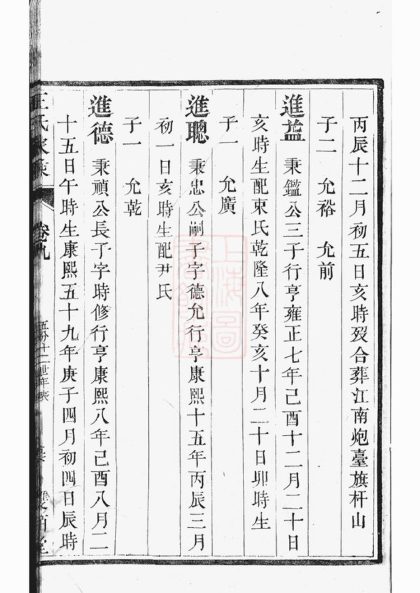 丙辰十二月初五日亥時歿合葬江南炮臺旗杆山
子二 允裕 允前
進益 秉鑑公三子行亨雍正七年己酉十二月二十日
亥時生配束氏乾隆八年癸亥十月二十日卯時生
子一 允廣
進聰 秉忠公嗣子字德允行亨康熙十五年丙辰三月
初一日亥時生配尹氏
子一 允乾
進德 秉禎公長子字時修行亨康熙八年己酉八月二
十五日午時生康熙五十九年庚子四月初四日辰時
卷九